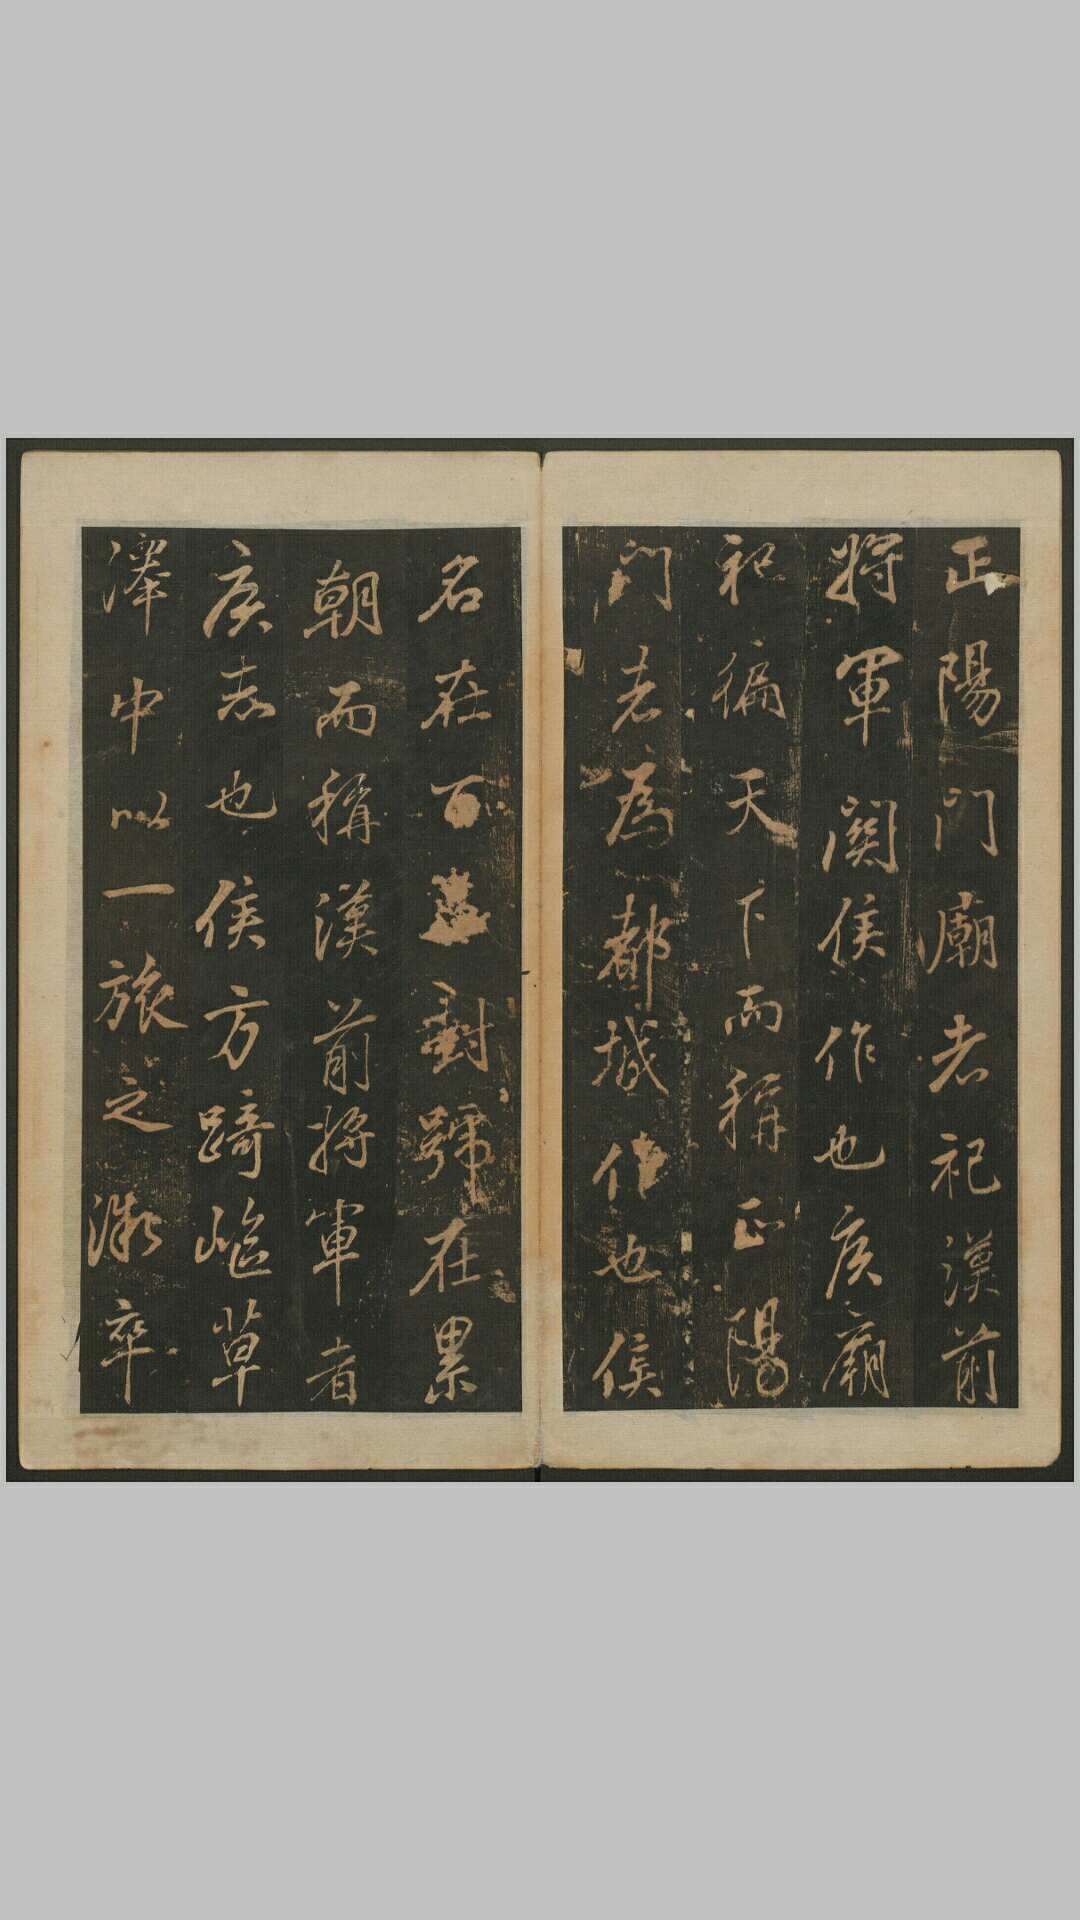 正陽門廟者祀漢前
將軍關侯作也侯廟
祀徧天下而稱正陽
門者為都城作也侯
名在百封號在累
朝而稱漢前將軍者
侯志也侯方踦嶇草
澤中以一旅之微卒